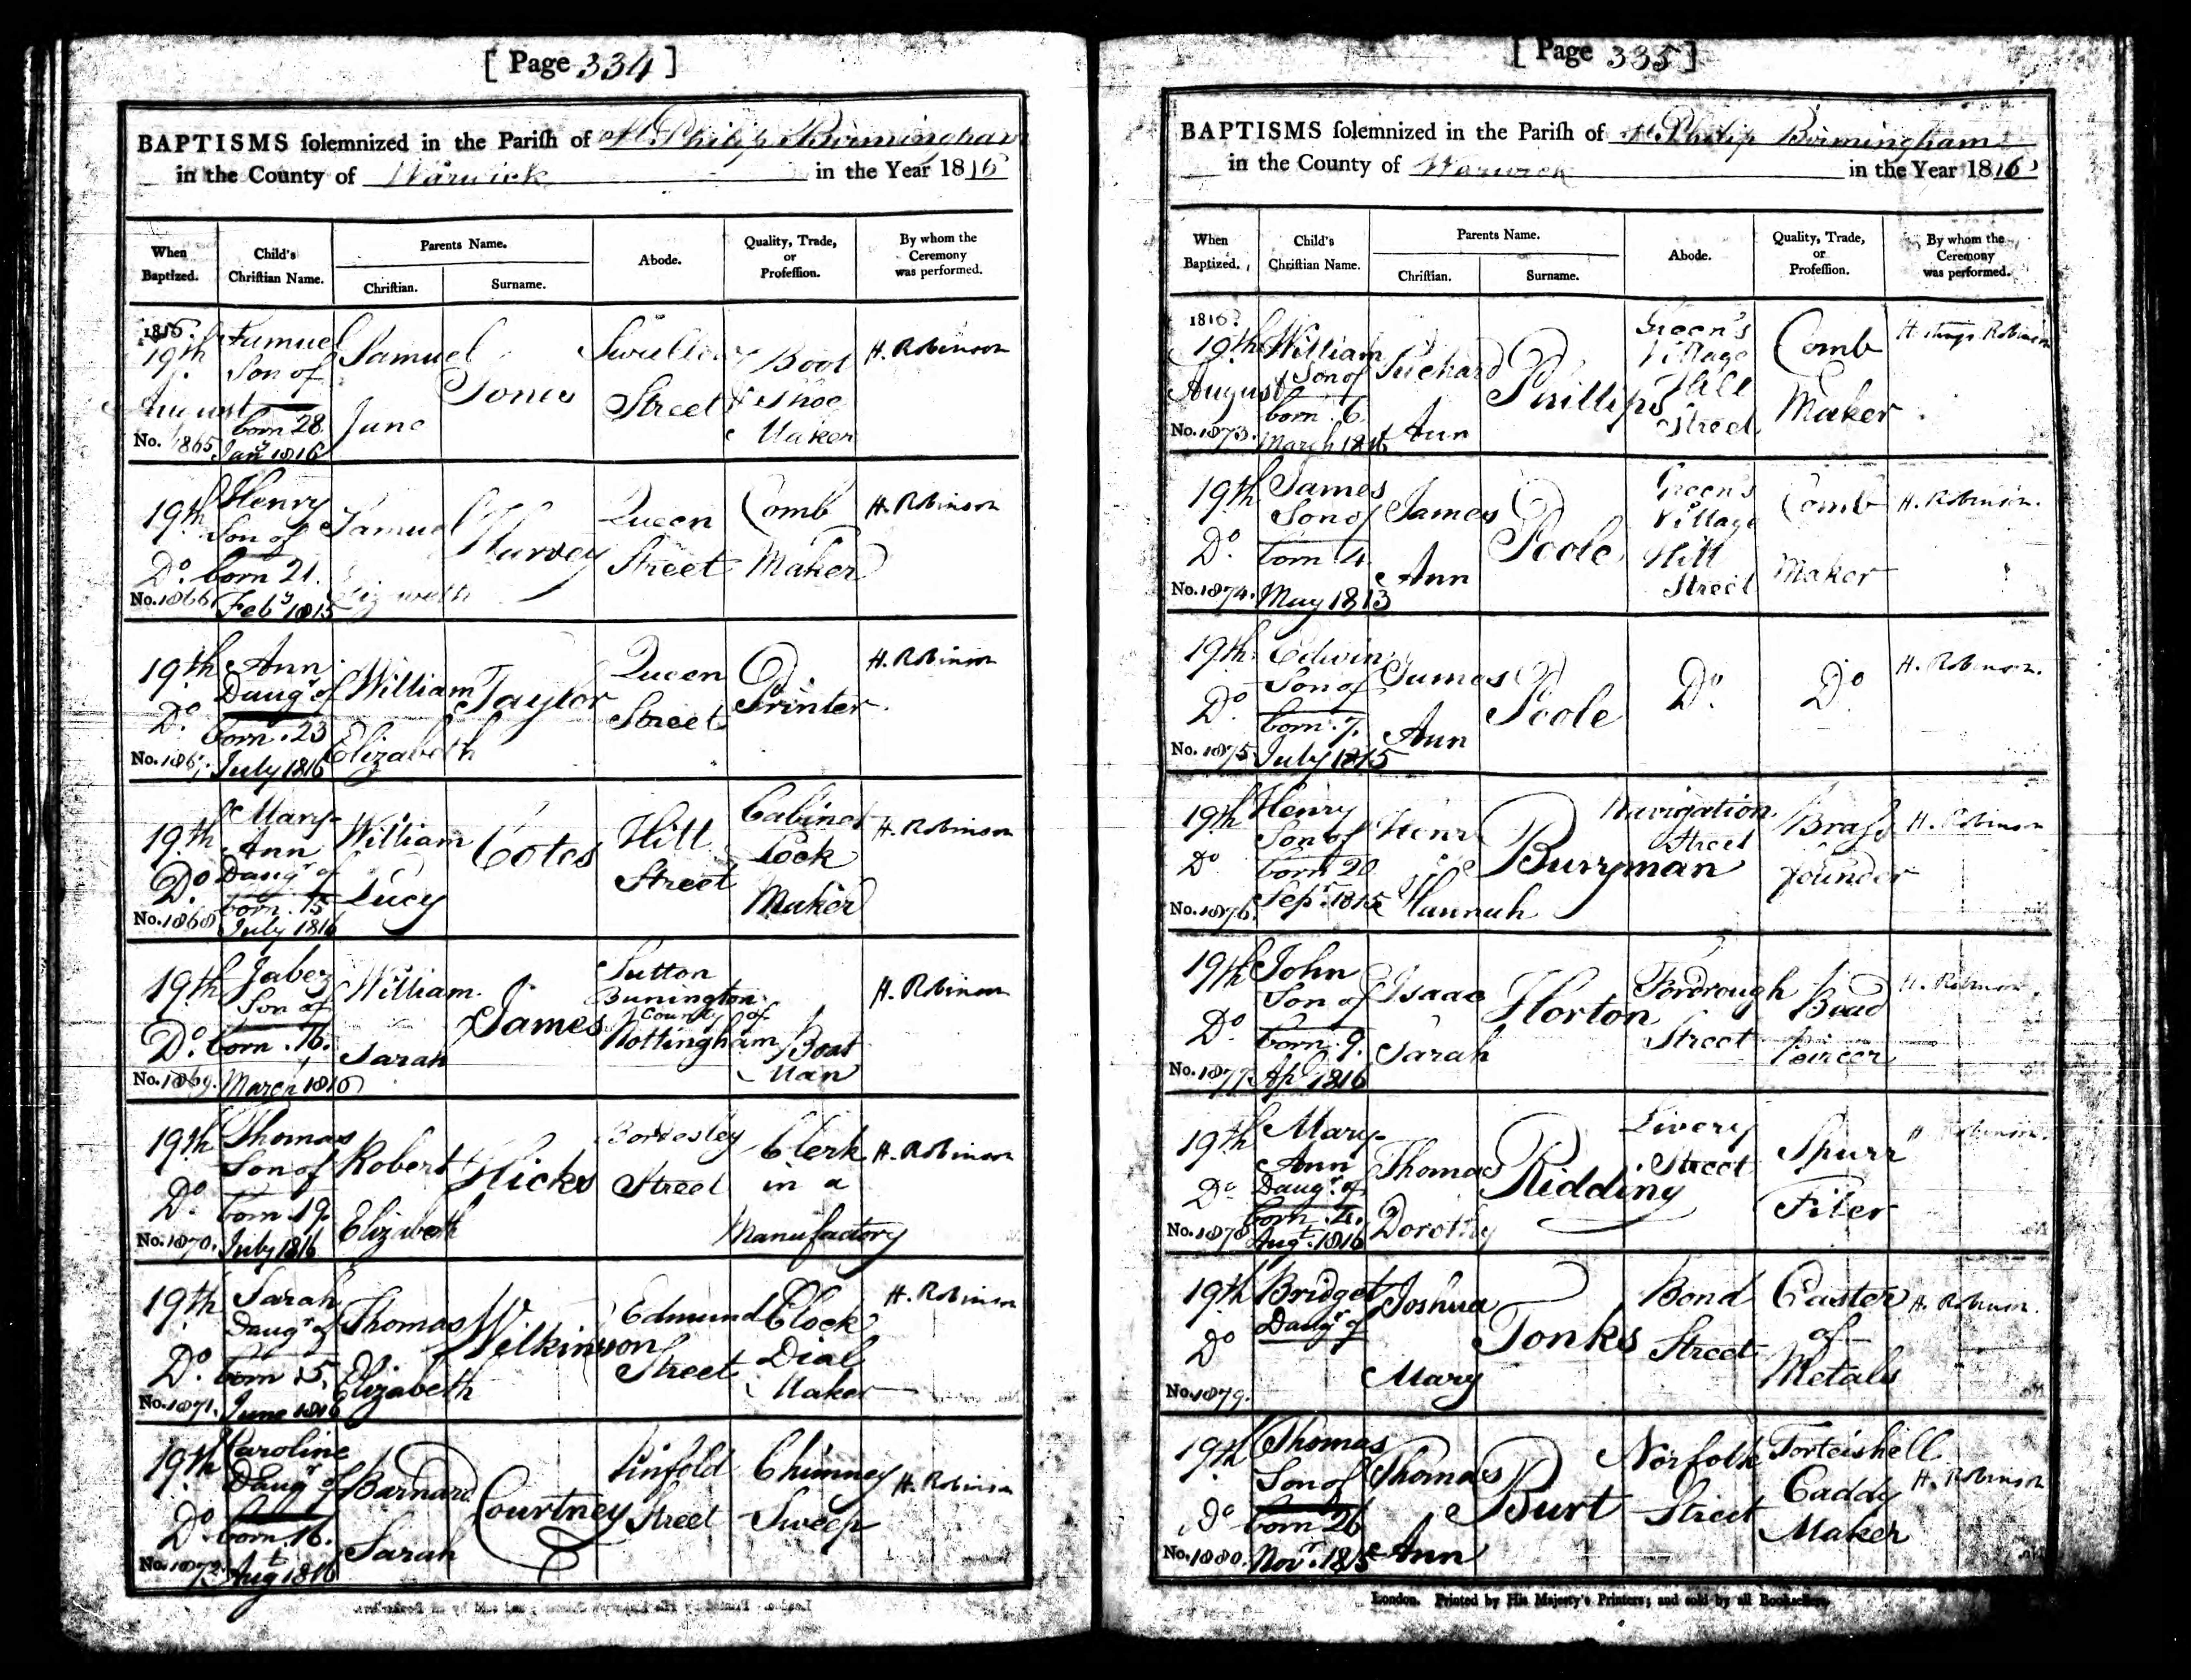 [ Page 334 ]
BAPTISMS solemnized in the Parish of St. Philip Birmingham
in the County of Warwick in the Year 1816
When Baptized.
Child's Christian Name.
Parents Name.
Christian.
Surname.
Abode.
Quality, Trade, or Profession.
By whom the Ceremony was performed.
1816.
19th
August
No. 1865
Samuel
Son of
born 28
Jany 1816
Samuel
Jane
Jones
Street
Boot
& Shoe
Maker
H. Robinson
19th
Do.
No. 1866
Henry
Son of
born 21.
Feby 1815
Samuel
Elizabeth
Harvey
Queen
Street
Comb
Maker
H. Robinson
19th
Do.
No. 1867.
Ann
Daugr of
born. 23
July 1816
William
Elizabeth
Taylor
Queen
Street
Printer
H. Robinson
19th
Do.
No. 1868
Mary-
Ann
Daugr of
born. 15
July 1816
William
Lucy
Cotes
Hill
Street
Cabinet
Lock
Maker
H. Robinson
19th
Do.
No. 1869.
Jabez
Son of
born. 16.
March 1816
William
Sarah
James
Sutton
Bunington
County of
Nottingham
Boat
Man
H. Robinson
19th
Do
No. 1870.
Thomas
Son of
born 19.
July 1816
Robert
Elizabeth
Hicks
Bordesley
Street
Clerk
in a
Manufactory
H. Robinson
19th
Do.
No. 1871.
Sarah
Daugr of
born 5.
June 1816
Thomas
Elizabeth
Wilkinson
Edmund
Street
Clock
Dial
Maker
H. Robinson
19th
Do
No. 1872.
Caroline
Daugr of
born. 16.
Augt 1816
Barnard
Sarah
Courtney
Pinfold
Street
Chimney
Sweep
H. Robinson
[ Page 335 ]
BAPTISMS solemnized in the Parish of St. Philip Birmingham
in the County of Warwick in the Year 1816
When Baptized.
Child's Christian Name.
Parents Name.
Christian.
Surname.
Abode.
Quality, Trade, or Profession.
By whom the Ceremony was performed.
1816.
19th
August
No. 1873.
William
Son of
born. 6.
March 1816
Richard
Ann
Phillips
Green's
Village
Hill
Street
Comb
Maker
H. Robinson
19th
Do.
No. 1874.
James
Son of
born 4.
May 1813
James
Ann
Poole
Green's
Village
Hill
Street
Comb
Maker
H. Robinson.
19th.
Do.
No. 1875
Edwin
Son of
born. 7.
July 1815
James
Ann
Poole
Do.
Do
H. Robinson.
19th
Do
No. 1876.
Henry
Son of
born 20
Sepr. 1815
Henry
Hannah
Burryman
Navigation
Street
Brass
founder
H. Robinson
19th
Do.
No. 1877.
John
Son of
born. 9.
Apl 1816
Isaac
Sarah
Horton
Street
Bead
H. Robinson.
19th
Do
No. 1878
Mary-
Ann
Daugr. of
born. 4.
Augt. 1816
Thomas
Dorothy
Ridding
Livery
Street
Spurr
Filer
H. Robinson.
19th
Do
No. 1879.
Bridget
Daugr of
Joshua
Mary
Tonks
Bond
Street
Caster
of
Metals
H. Robinson.
19th
Do
No. 1880.
Thomas
Son of
born 26
Novr. 1815
Thomas
Ann
Burt
Norfolk
Street
Torteishell
Caddy
Maker
H. Robinson
London. Printed by His Majesty's Printers; and sold by all Booksellers.